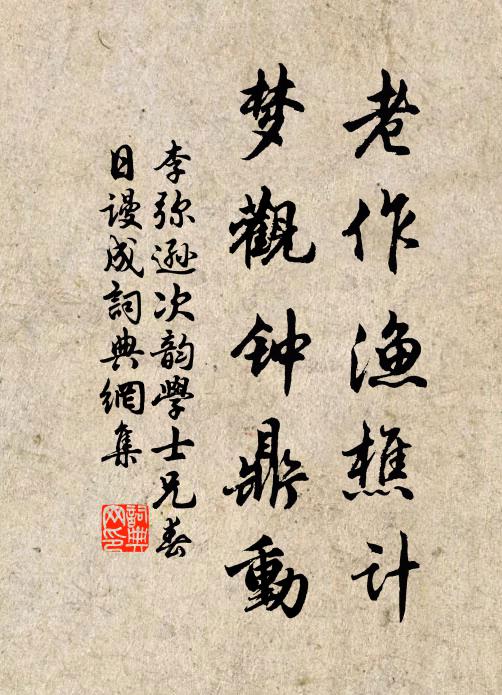 老作渔樵计
梦觀钟鼎動
李弥遜次韵學士兄春
日谩成詞典網集
詞典網印